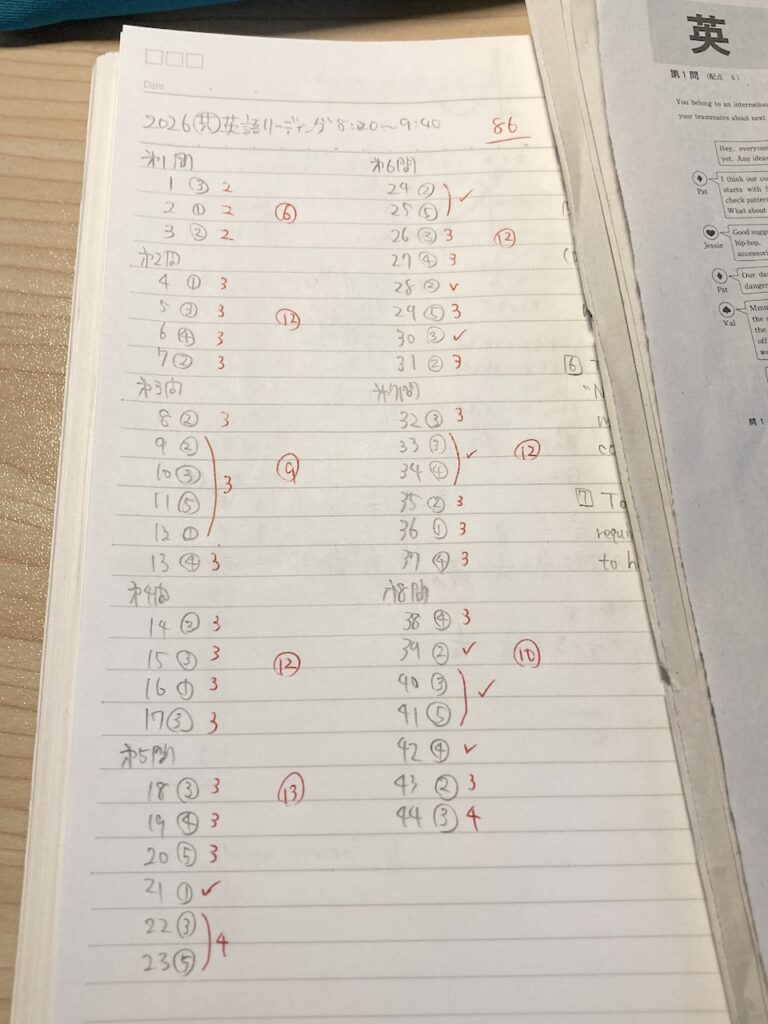 Date
2026㋖英語リーディング 8:20〜9:40 86
第1問
1 ③ 2
2 ① 2 ⑥
3 ② 2
第2問
4 ① 3
5 ③ 3 ⑫
6 ④ 3
7 ② 3
第3問
8 ② 3
9 ②
10 ③ 3 ⑨
11 ⑤
12 ①
13 ④ 3
第4問
14 ② 3
15 ③ 3 ⑫
16 ① 3
17 ③ 3
第5問
18 ③ 3 ⑬
19 ④ 3
20 ⑤ 3
21 ① ✓
22 ③
23 ⑤ 4
第6問
24 ② ✓
25 ⑤
26 ③ 3 ⑫
27 ④ 3
28 ② ✓
29 ⑤ 3
30 ③ ✓
31 ② 3
第7問
32 ③ 3
33 ③ ✓ ⑫
34 ④
35 ② 3
36 ① 3
37 ④ 3
第8問
38 ④ 3
39 ② ✓ ⑩
40 ③ ✓
41 ⑤
42 ④ ✓
43 ② 3
44 ③ 4
6 T
"N
co
7 To
requi
to h
英
第1問 (配点 6)
You belong to an internation
your teammates about next
Hey, everyone
yet. Any ideas
I think our co
starts with S
check pattern
What about
Pat
Good sugge
hip-hop,
accessorie
Jessie
Our da
danger
Pat
Mmm
the s
the
off
wo
Val
問1